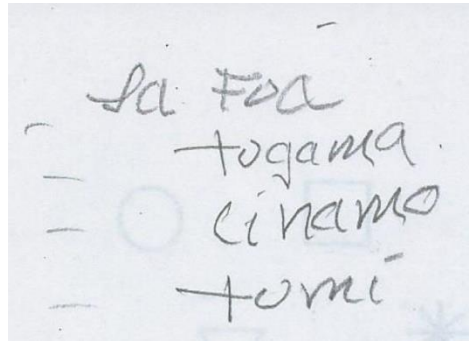 La Foa
togama
cinamo
tomi